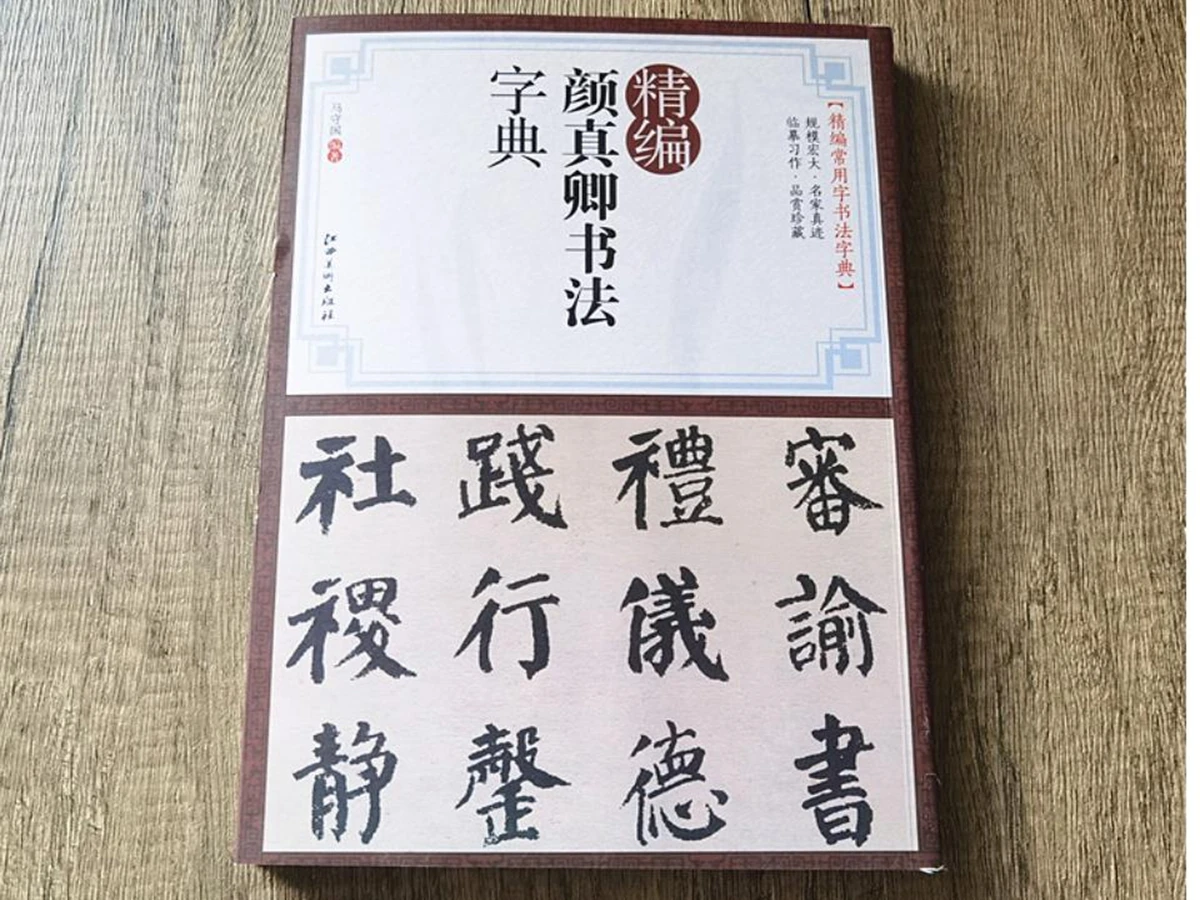 【精编常用字书法字典】
规模宏大·名家真迹
临摹习作·品赏珍藏
精编
颜真卿书法
字典
马守国 编著
江西美术出版社
審諭書
禮儀德
踐行
社稷静